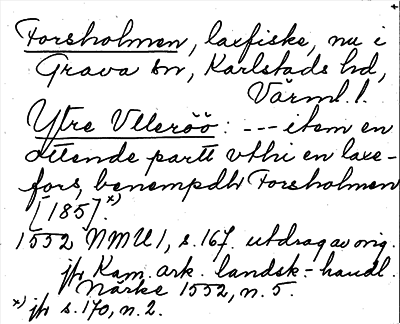 Forsholmen, laxfiske, nu i
Grava sn, Karlstads hd,
Värml. l.
Ytre Vlleröö: --- item en
ottende partt vthi en laxe-
fors, benempdh Forsholmen
[185].x)
1552 NMU 1, s. 167. utdrag av orig.
jfr Kam. ark. landsk.-handl.
Närke 1552, n. 5.
x) jfr s. 170, n. 2.